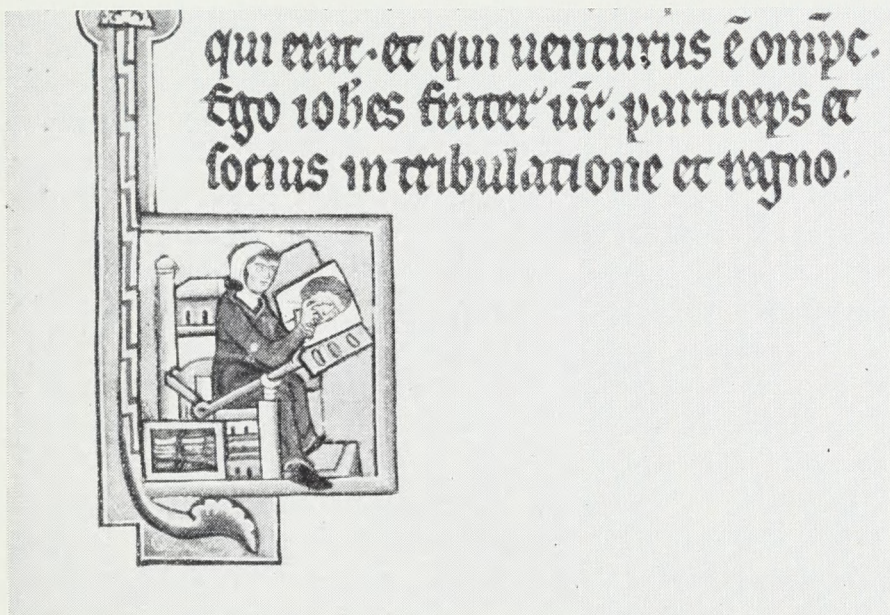 qui erat · et qui uenturus ē om̅pc ·
Ego ioh̅es frater ur̅ · particeps et
socius in tribulatione et regno ·